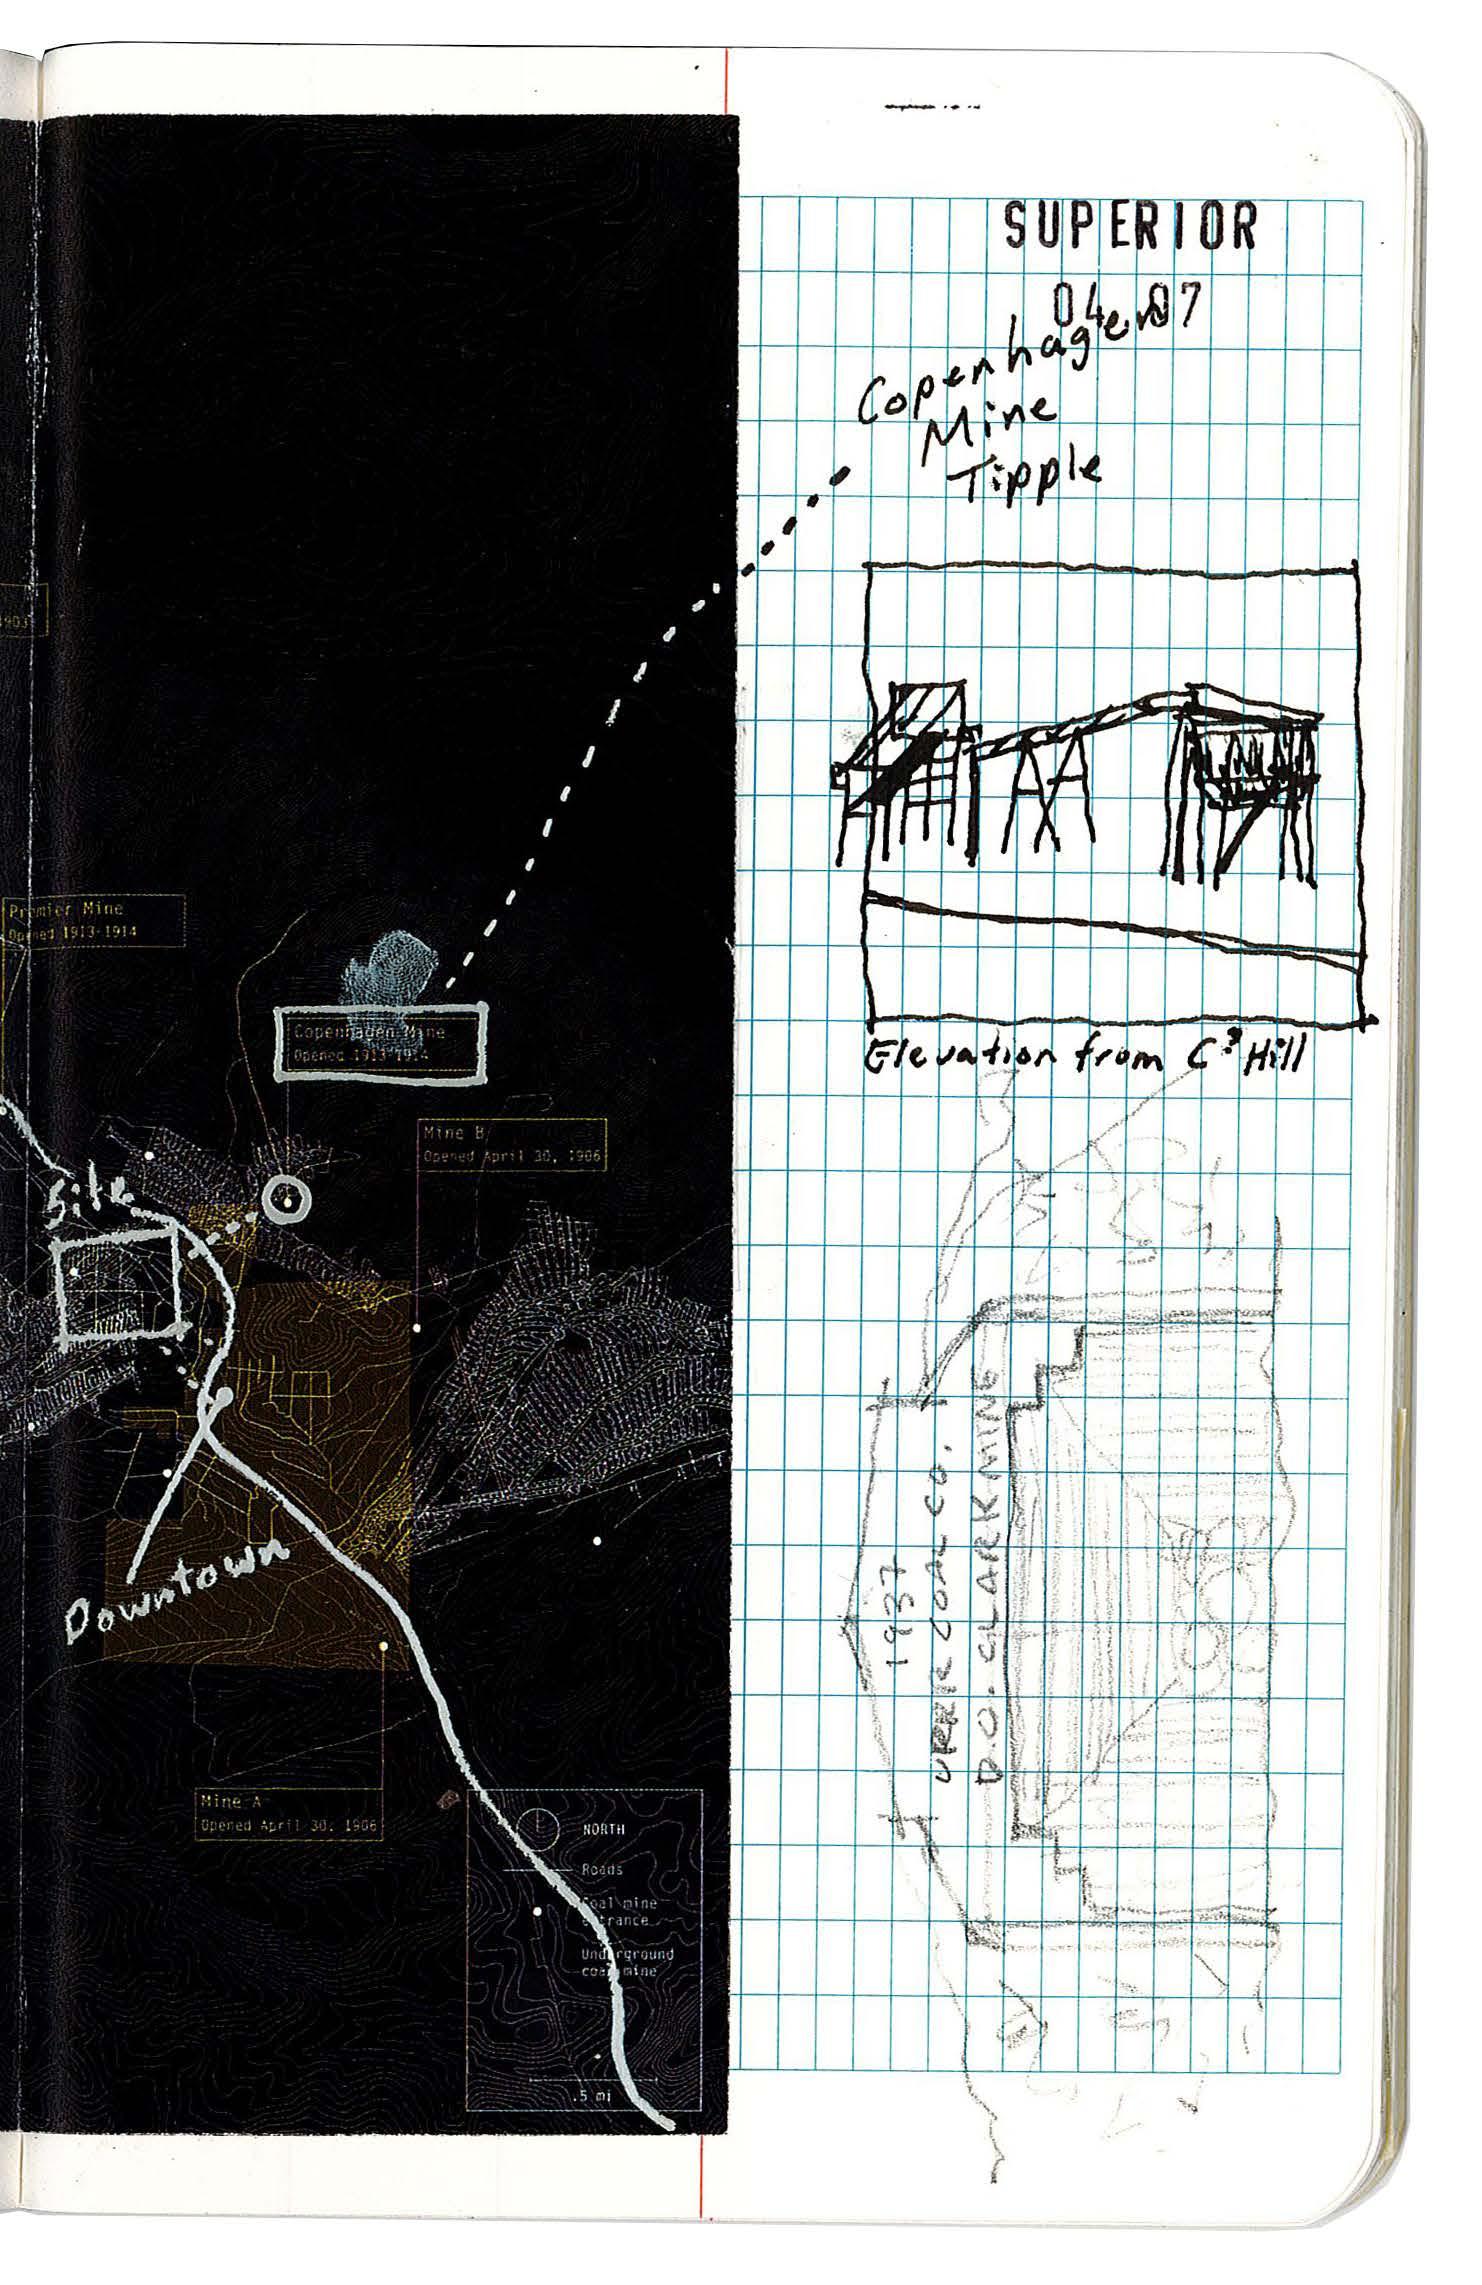 SUPERIOR
04.07
Copenhagen
Mine
Tipple
1903
Premier Mine
Opened 1913-1914
Copenhagen Mine
Opened 1913-1914
Elevation from C³ Hill
Mine B
Opened April 30, 1906
Site
Downtown
1937
UPRR COAL CO.
D.O. CLARK MINE
Mine A
Opened April 30, 1906
NORTH
Roads
Coal mine
entrance
Underground
coal mine
.5 mi